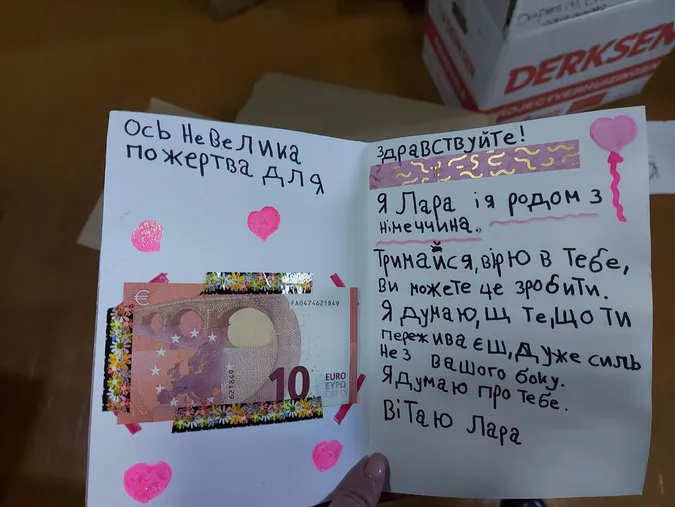 Ось невелика
пожертва для
FA0474621849
621849
10
EURO
ΕΥΡΩ
здравствуйте!
Я Лара ія родом з
німеччина.
Тримайся, вірю в тебе,
ви можете це зробити.
Я думаю, щ те, що ти
переживаєш, дуже силь
не з вашого боку.
Я думаю про тебе.
Вітаю Лара
DERKSEN